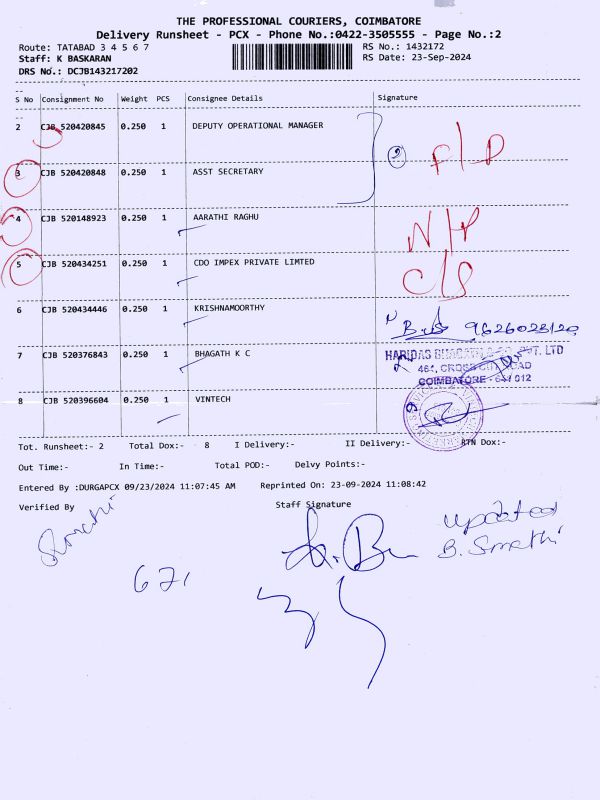 THE PROFESSIONAL COURIERS, COIMBATORE
Delivery Runsheet - PCX - Phone No.:0422-3505555 - Page No.:2
Route: TATABAD 3 4 5 6 7 RS No.: 1432172
Staff: K BASKARAN RS Date: 23-Sep-2024
DRS No.: DCJB143217202
S No Consignment No Weight PCS Consignee Details Signature
2 CJB 520420845 0.250 1 DEPUTY OPERATIONAL MANAGER
3 CJB 520420848 0.250 1 ASST SECRETARY
4 CJB 520148923 0.250 1 AARATHI RAGHU
5 CJB 520434251 0.250 1 CDO IMPEX PRIVATE LIMTED
6 CJB 520434446 0.250 1 KRISHNAMOORTHY
7 CJB 520376843 0.250 1 BHAGATH K C
HARIDAS BHAGATH & CO. PVT. LTD
461, CROSS CUT ROAD
COIMBATORE - 641 012
8 CJB 520396604 0.250 1 VINTECH
Tot. Runsheet:- 2 Total Dox:- 8 I Delivery:- II Delivery:- RTN Dox:-
Out Time:- In Time:- Total POD:- Delvy Points:-
Entered By :DURGAPCX 09/23/2024 11:07:45 AM Reprinted On: 23-09-2024 11:08:42
Verified By Staff Signature
updated
B. Smethi
671